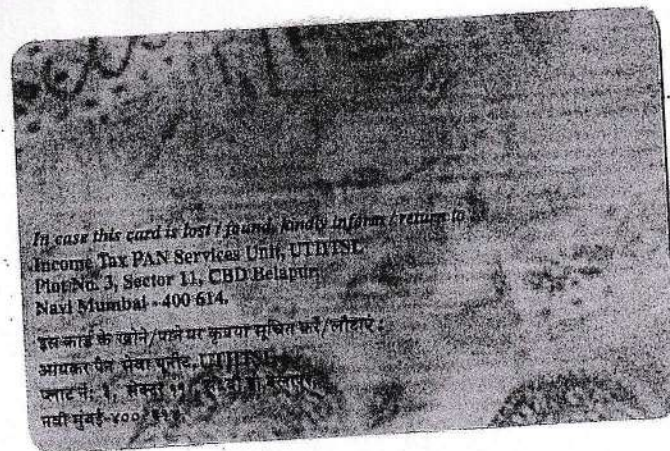 In case this card is lost / found, kindly inform / return to :
Income Tax PAN Services Unit, UTIITSL
Plot No. 3, Sector 11, CBD Belapur,
Navi Mumbai - 400 614.
इस कार्ड के खोने/पाने पर कृपया सूचित करें/लौटाएं :
आयकर पैन सेवा यूनीट, UTIITSL
प्लाट नं: ३, सेक्टर ११,
नवी मुंबई-४००